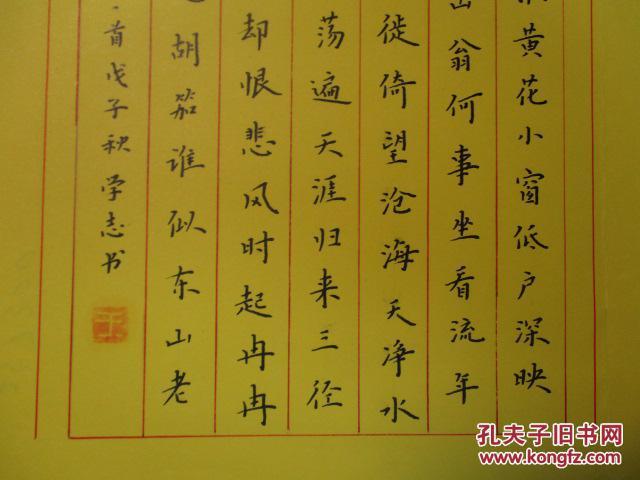 黄花小窗低户深映
翁何事坐看流年
徙倚望沧海天净水
荡遍天涯归来三径
却恨悲风时起冉冉
胡笳谁似东山老
首戊子秋学志书
孔夫子旧书网
www.kongfz.com